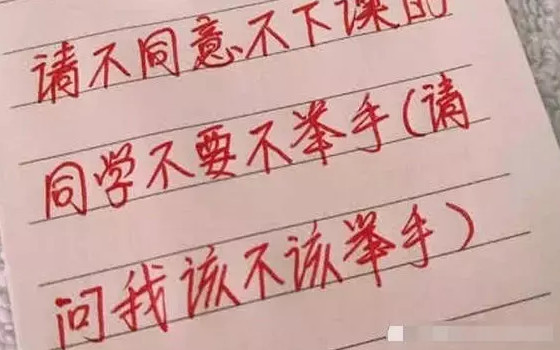 请不同意不下课的
同学不要不举手(请
问我该不该举手)